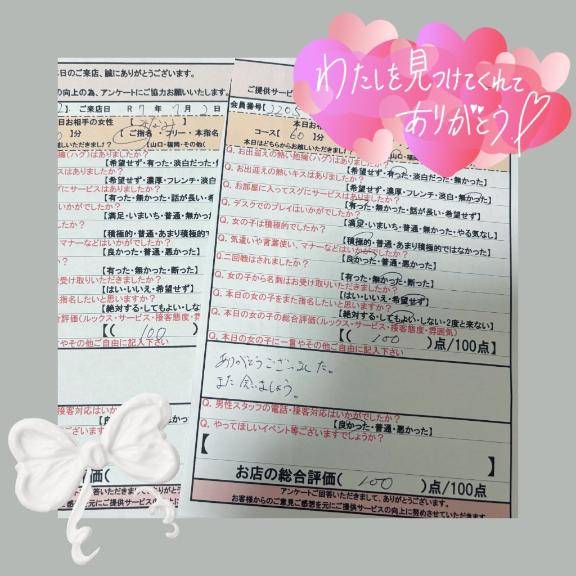 わたしを見つけてくれて
ありがとう!
本日のご来店、誠にありがとうございます。
の向上の為、アンケートにご協力お願いいたします。
ご来店日 R7年7月3日
日お相手の女性
分 【ご指名・フリー・本指名
(山口・福岡・その他(
抱擁(ハグ)はありましたか?
【希望せず・有った・淡白だった・
キスはありましたか?
【希望せず・濃厚・フレンチ・淡白
サービスはありましたか?
【有った・無かった・話が長い・希望
がでしたか?
【満足・いまいち・普通・無か
したか?
【積極的・普通・あまり積極的
マナーなどはいかがでしたか?
【良かった・普通・悪かった】
ましたか?
【有った・無かった・断った】
お受け取りいただきましたか?
【はい・いいえ・希望せず】
指名したいと思いますか?
【絶対する・してもよい・しない
合評価(ルックス・サービス・接客態度・雰
【( 100
やその他ご自由に記入下さい
接客対応はいかがでしたか?
【良かった・普通・悪かった】
ございますでしょうか?
評価( 100
回答いただきまして、ありがとうございます。
ご感想を元にご提供サービスの向上に
ご提供サービス
会員番号【
本日お
コース【 60 】分
本日はどちらからお越しいただきま
Q. お出迎えの熱い抱擁(ハグ)はありましたか?
【希望せず・有った・淡白だった・無かった】
Q. お出迎えの熱いキスはありましたか?
【希望せず・濃厚・フレンチ・淡白・無かった】
Q. お部屋に入ってスグにサービスはありましたか?
【有った・無かった・話が長い・希望せず】
Q. ゲスタでのプレイはいかがでしたか?
【満足・いまいち・普通・無かった・やる気なし】
Q. 女の子は積極的でしたか?
【積極的・普通・あまり積極的ではなかった】
Q. 気遣いや言葉使い、マナーなどはいかがでしたか?
【良かった・普通・悪かった】
Q. 二回戦はされましたか?
【有った・無かった・断った】
Q. 女の子から名刺はお受け取りいただきましたか?
【はい・いいえ・希望せず】
Q. 本日の女の子をまた指名したいと思いますか?
【絶対する・してもよい・しない・2度と来ない】
Q. 本日の女の子の総合評価(ルックス・サービス・接客態度・雰囲気)
【( 100 )点/100点】
Q. 本日の女の子に一言やその他ご自由に記入下さい
ありがとうございました。
また会いましょう。
Q. 男性スタッフの電話・接客対応はいかがでしたか?
【良かった・普通・悪かった】
Q. やってほしいイベント等ございますでしょうか?
【 】
お店の総合評価( 100 )点/100点
アンケートご回答いただきまして、ありがとうございます。
お客様からのご意見ご感想を元にご提供サービスの向上に努めさせていただきます